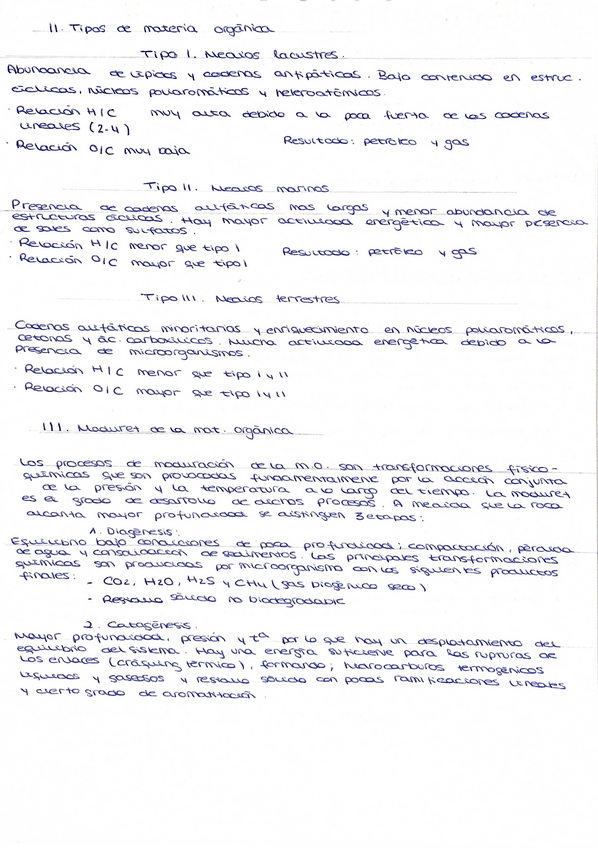 II. Tipos de materia orgánica
Tipo I. Medios lacustres.
Abundancia de lípidos y cadenas antipáticas. Bajo contenido en estruc.
cíclicas, núcleos poliaromáticos y heteroatómicos.
· Relación H/C muy alta debido a la poca fuerza de las cadenas
lineales (2-4)
Resultado: petróleo y gas
· Relación O/C muy baja
Tipo II. Medios marinos
Presencia de cadenas alifáticas mas largas y menor abundancia de
estructuras cíclicas. Hay mayor actividad energética y mayor presencia
de sales como sulfatos.
· Relación H/C menor que tipo I
Resultado: petróleo y gas
· Relación O/C mayor que tipo I
Tipo III. Medios terrestres
Cadenas alifáticas minoritarias y enriquecimiento en núcleos poliaromáticos,
cetonas y ác. carboxílicos. Mucha actividad energética debido a la
presencia de microorganismos.
· Relación H/C menor que tipo I y II
· Relación O/C mayor que tipo I y II
III. Madurez de la mat. orgánica
Los procesos de maduración de la m.o. son transformaciones físico-
químicas que son provocadas fundamentalmente por la acción conjunta
de la presión y la temperatura a lo largo del tiempo. La madurez
es el grado de desarrollo de dichos procesos. A medida que la roca
alcanza mayor profundidad se distinguen 3 etapas:
1. Diagénesis:
Equilibrio bajo condiciones de poca profundidad; compactación, pérdida
de agua y consolidación de sedimentos. Las principales transformaciones
químicas son producidas por microorganismo con los siguientes productos
finales: - CO2, H2O, H2S y CH4 (gas biogénico seco)
- Residuo sólido no biodegradable
2. Catagénesis.
Mayor profundidad, presión y tª por lo que hay un desplazamiento del
equilibrio del sistema. Hay una energía suficiente para las rupturas de
los enlaces (cráquing térmico), formando; hidrocarburos termogénicos
líquidos y gaseosos y residuo sólido con pocas ramificaciones lineales
y cierto grado de aromatización.